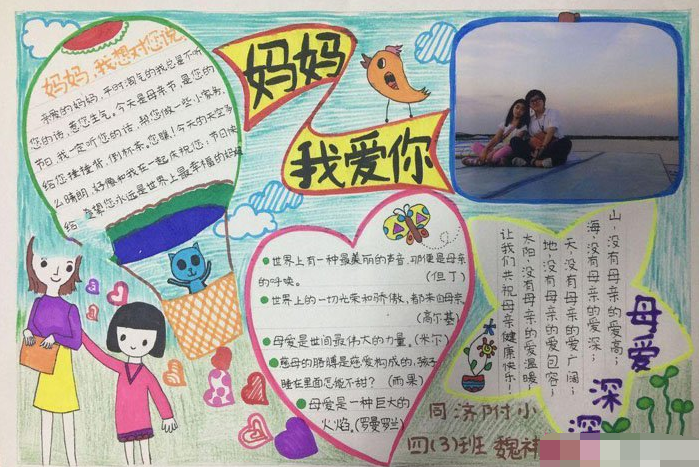 妈妈
我爱你
妈妈,我想对您说:
亲爱的妈妈,平时淘气的我总是不听
您的话,惹您生气。今天是母亲节,是您的
节日,我一定听您的话,帮您做一些小家务,
给您捶捶背,倒杯茶。您瞧!今天的天空多
么晴朗,好像和我在一起庆祝您:节日快
您永远是世界上最幸福的妈妈
世界上有一种最美丽的声音,那便是母亲
的呼唤。(但丁)
世界上的一切光荣和骄傲,都来自母亲
(高尔基)
母爱是世间最伟大的力量。(米尔)
慈母的胳膊是慈爱构成的,孩子
睡在里面怎能不甜?(雨果)
母爱是一种巨大的
火焰。(罗曼罗兰)
山,没有母亲的爱高;
海,没有母亲的爱深;
天,没有母亲的爱广阔;
地,没有母亲的爱包容;
太阳,没有母亲的爱温暖
让我们共祝母亲健康快乐!
母爱深深
同济附小
四(3)班 魏